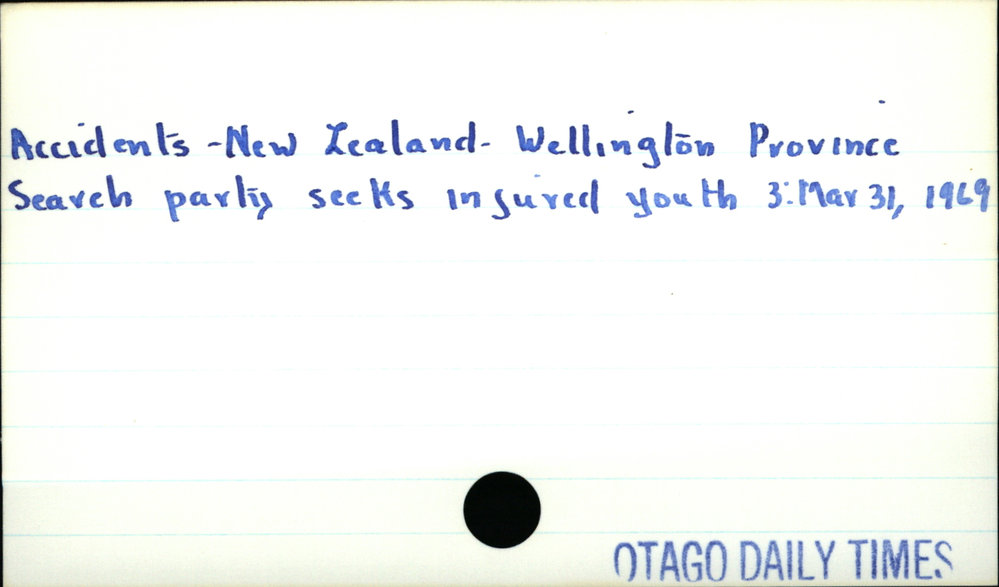 Accidents - New Zealand - Wellington Province
Search party seeks injured youth 3: Mar 31, 1969
OTAGO DAILY TIMES